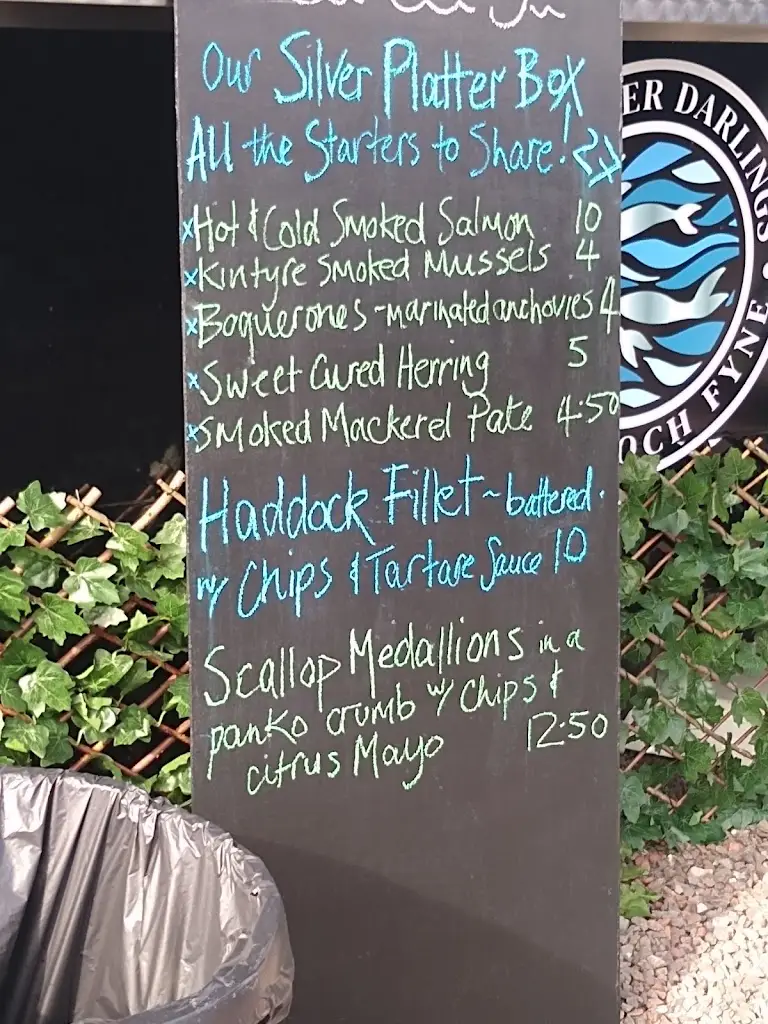 Our Silver Platter Box
All the Starters to Share!
x Hot & Cold Smoked Salmon 10
x Kintyre Smoked Mussels 4
x Boquerones ~ marinated anchovies 4
x Sweet Cured Herring 5
x Smoked Mackerel Pate 4.50
Haddock Fillet ~ battered.
w/ Chips & Tartare Sauce 10
Scallop Medallions in a
panko crumb w/ Chips &
citrus Mayo 12.50
ER DARLINGS
OCH FYNE